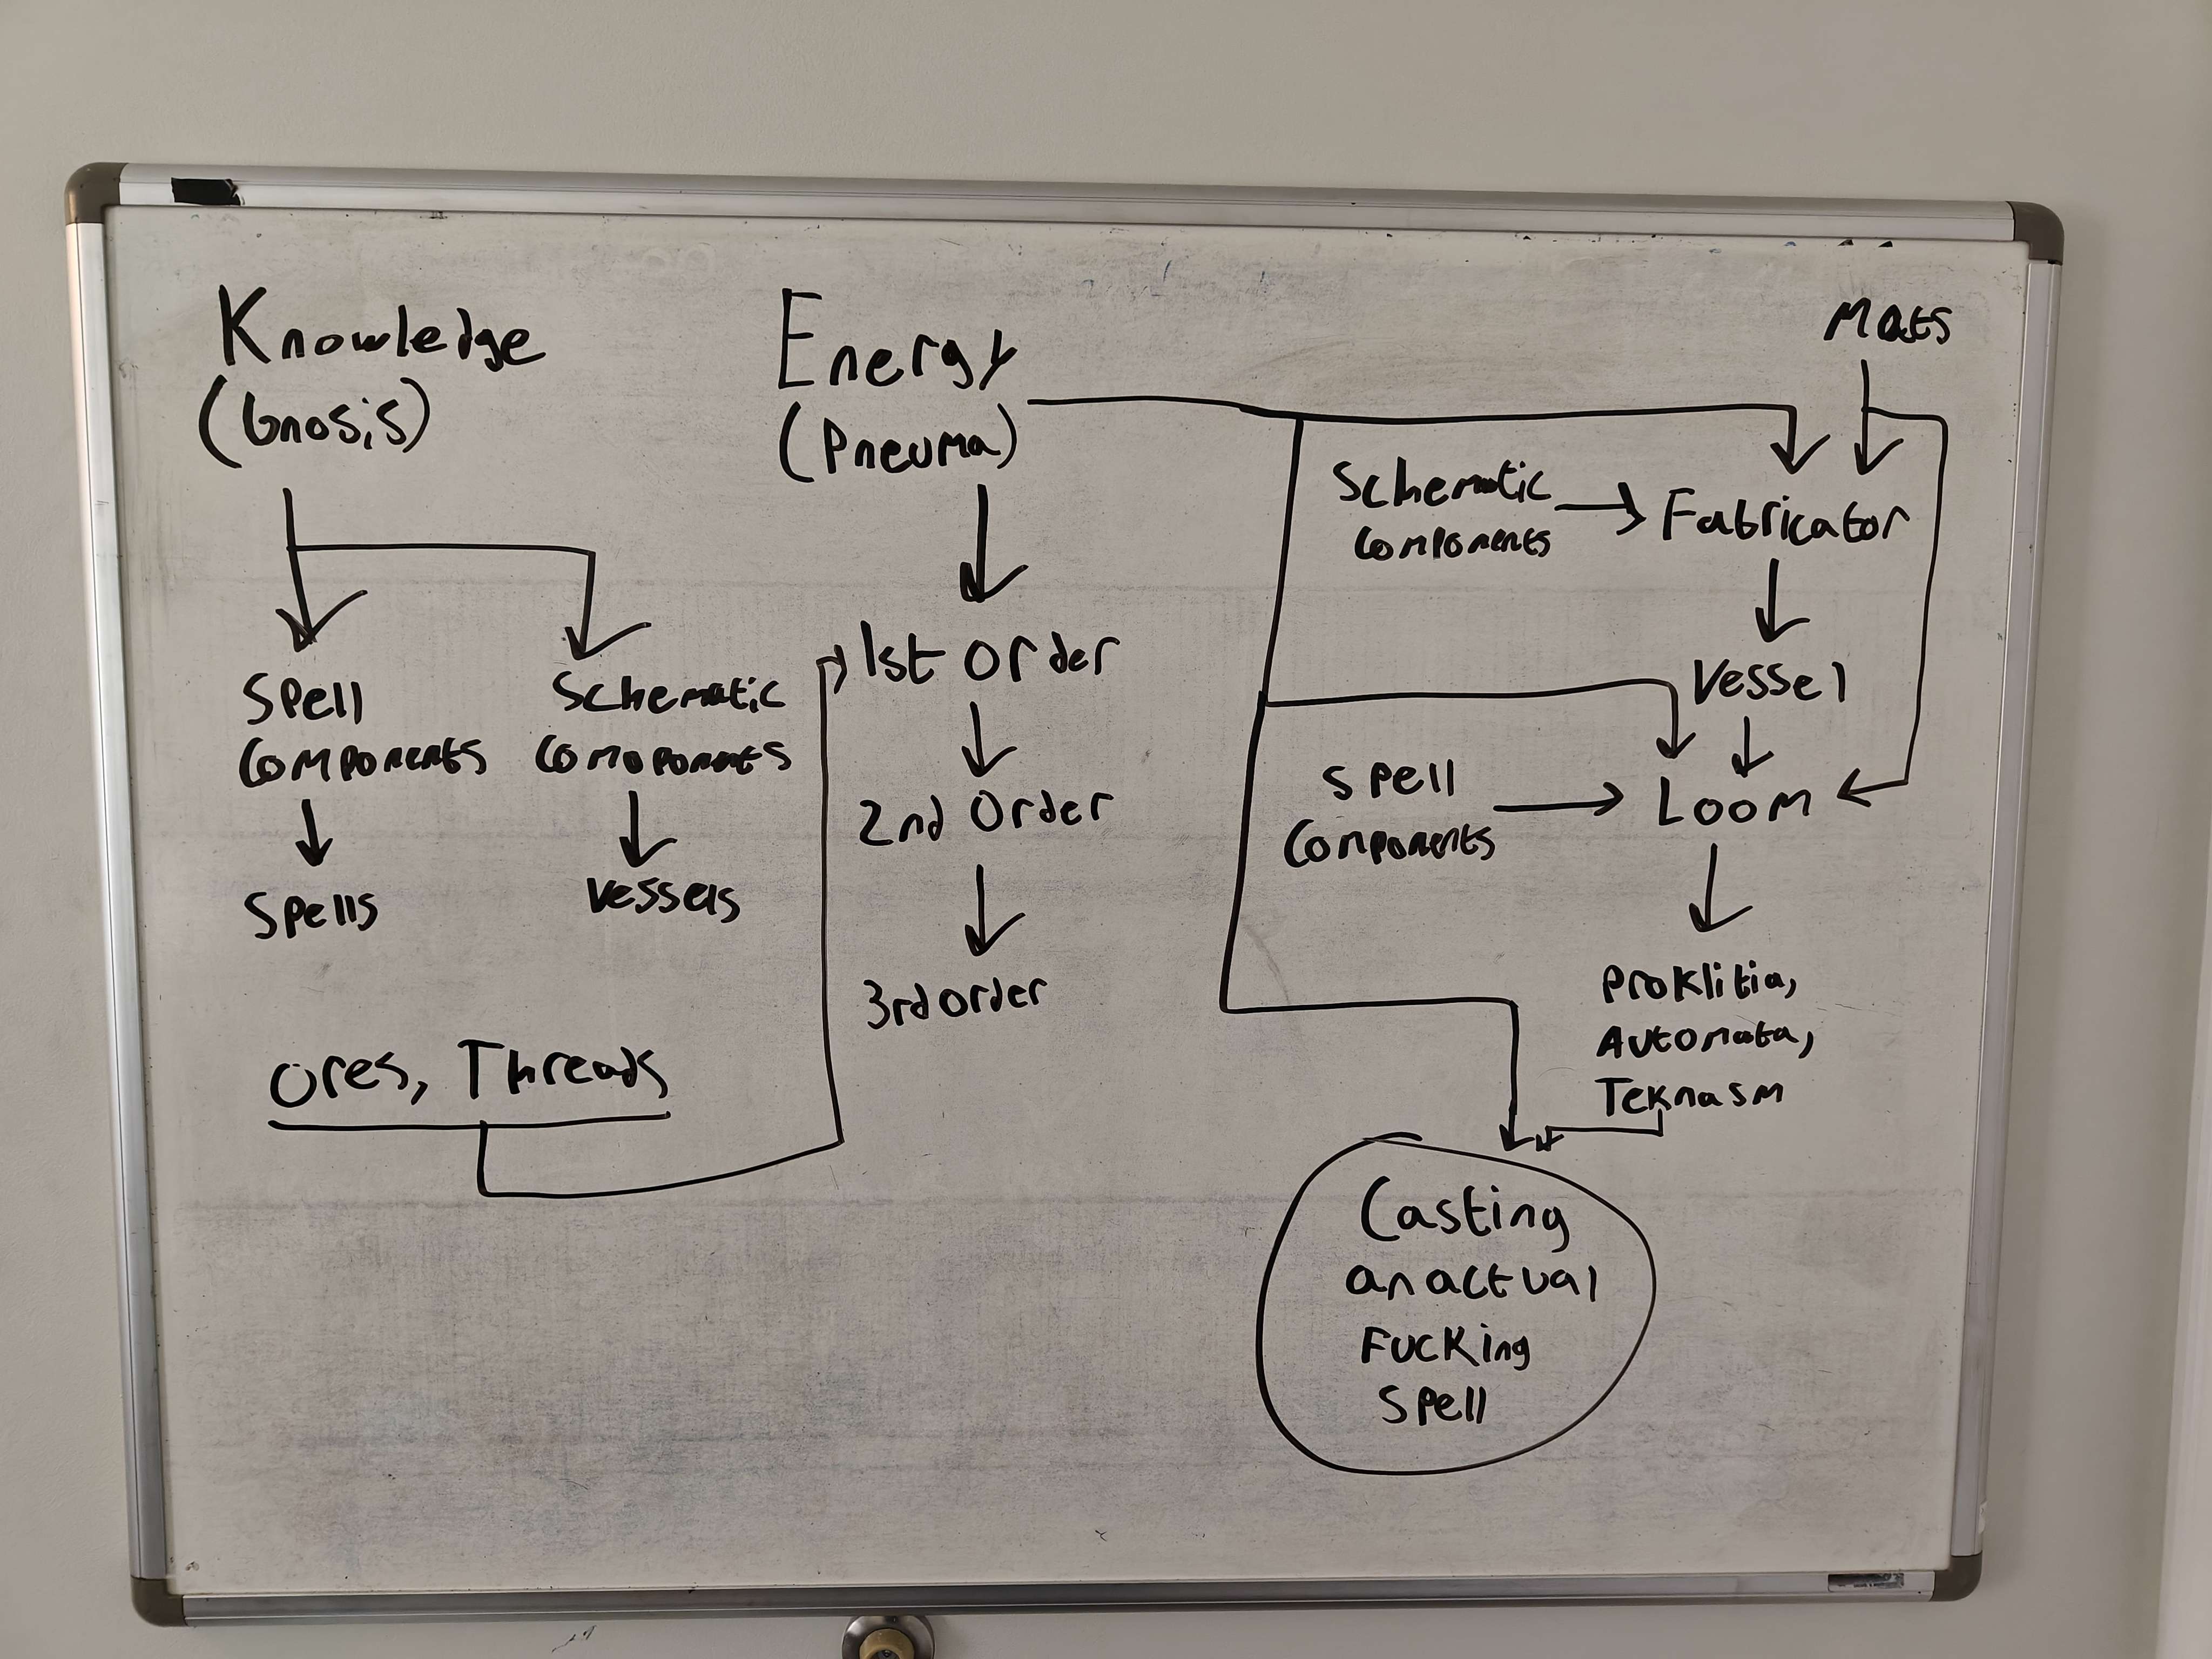 Knowledge
(Gnosis)
Spell
Components
Spells
Schematic
Comoponents
Vessels
Ores, Threads
Energy
(Pneuma)
1st Order
2nd Order
3rd order
Mats
Schematic
Components
Fabricator
Vessel
Spell
Components
Loom
Proklitia,
Automata,
Teknasm
Casting
an actual
Fucking
Spell